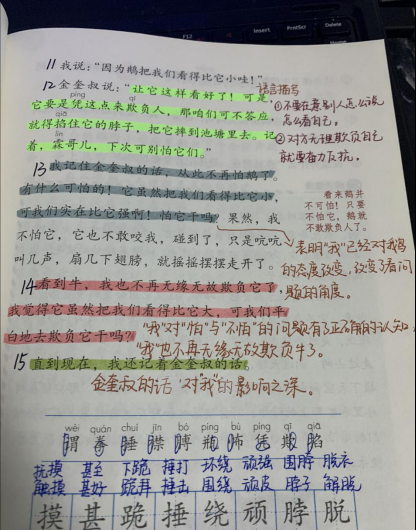 11 我说：“因为鹅把我们看得比它小哇！”
12 金奎叔说：“让它这样看好了！可是，
语言描写
píng qī
它要是凭这点来欺负人，那咱们可不答应，
①不要在意别人怎么说
怎么看自己。
qiā
就得掐住它的脖子，把它掉到池塘里去。记
②对方无理欺负自己
就要奋力反抗。
lín
着，霖哥儿，下次可别怕它们。”
13 我记住金奎叔的话，从此不再怕鹅了。
有什么可怕的！它虽然把我们看得比它小，
可我们实在比它强啊！怕它干吗？果然，我
看来鹅并
不可怕！只要
不怕它，鹅就
不敢欺负人了。
不怕它，它也不敢咬我，碰到了，只是吭吭
叫几声，扇几下翅膀，就摇摇摆摆走开了。
表明“我”已经对我鹅
的态度改变，改变了看问
题的角度。
14 看到牛，我也不再无缘无故欺负它了，
我觉得它虽然把我们看得比它大，可我们平
白地去欺负它干吗？
“我”对“怕”与“不怕”的问题有了正确的认知，
“我”也不再无缘无故欺负牛了。
15 直到现在，我还记着金奎叔的话。
金奎叔的话对“我”的影响之深。
wèi quán chuí jīn bó píng bù píng qī qiā
谓 拳 捶 襟 膊 瓶 怖 凭 欺 掐
抚摸 甚至 下跪 捶打 环绕 顽强 围脖 脱衣
触摸 甚好 跪拜 捶击 围绕 顽皮 脖子 解脱
摸 甚 跪 捶 绕 顽 脖 脱